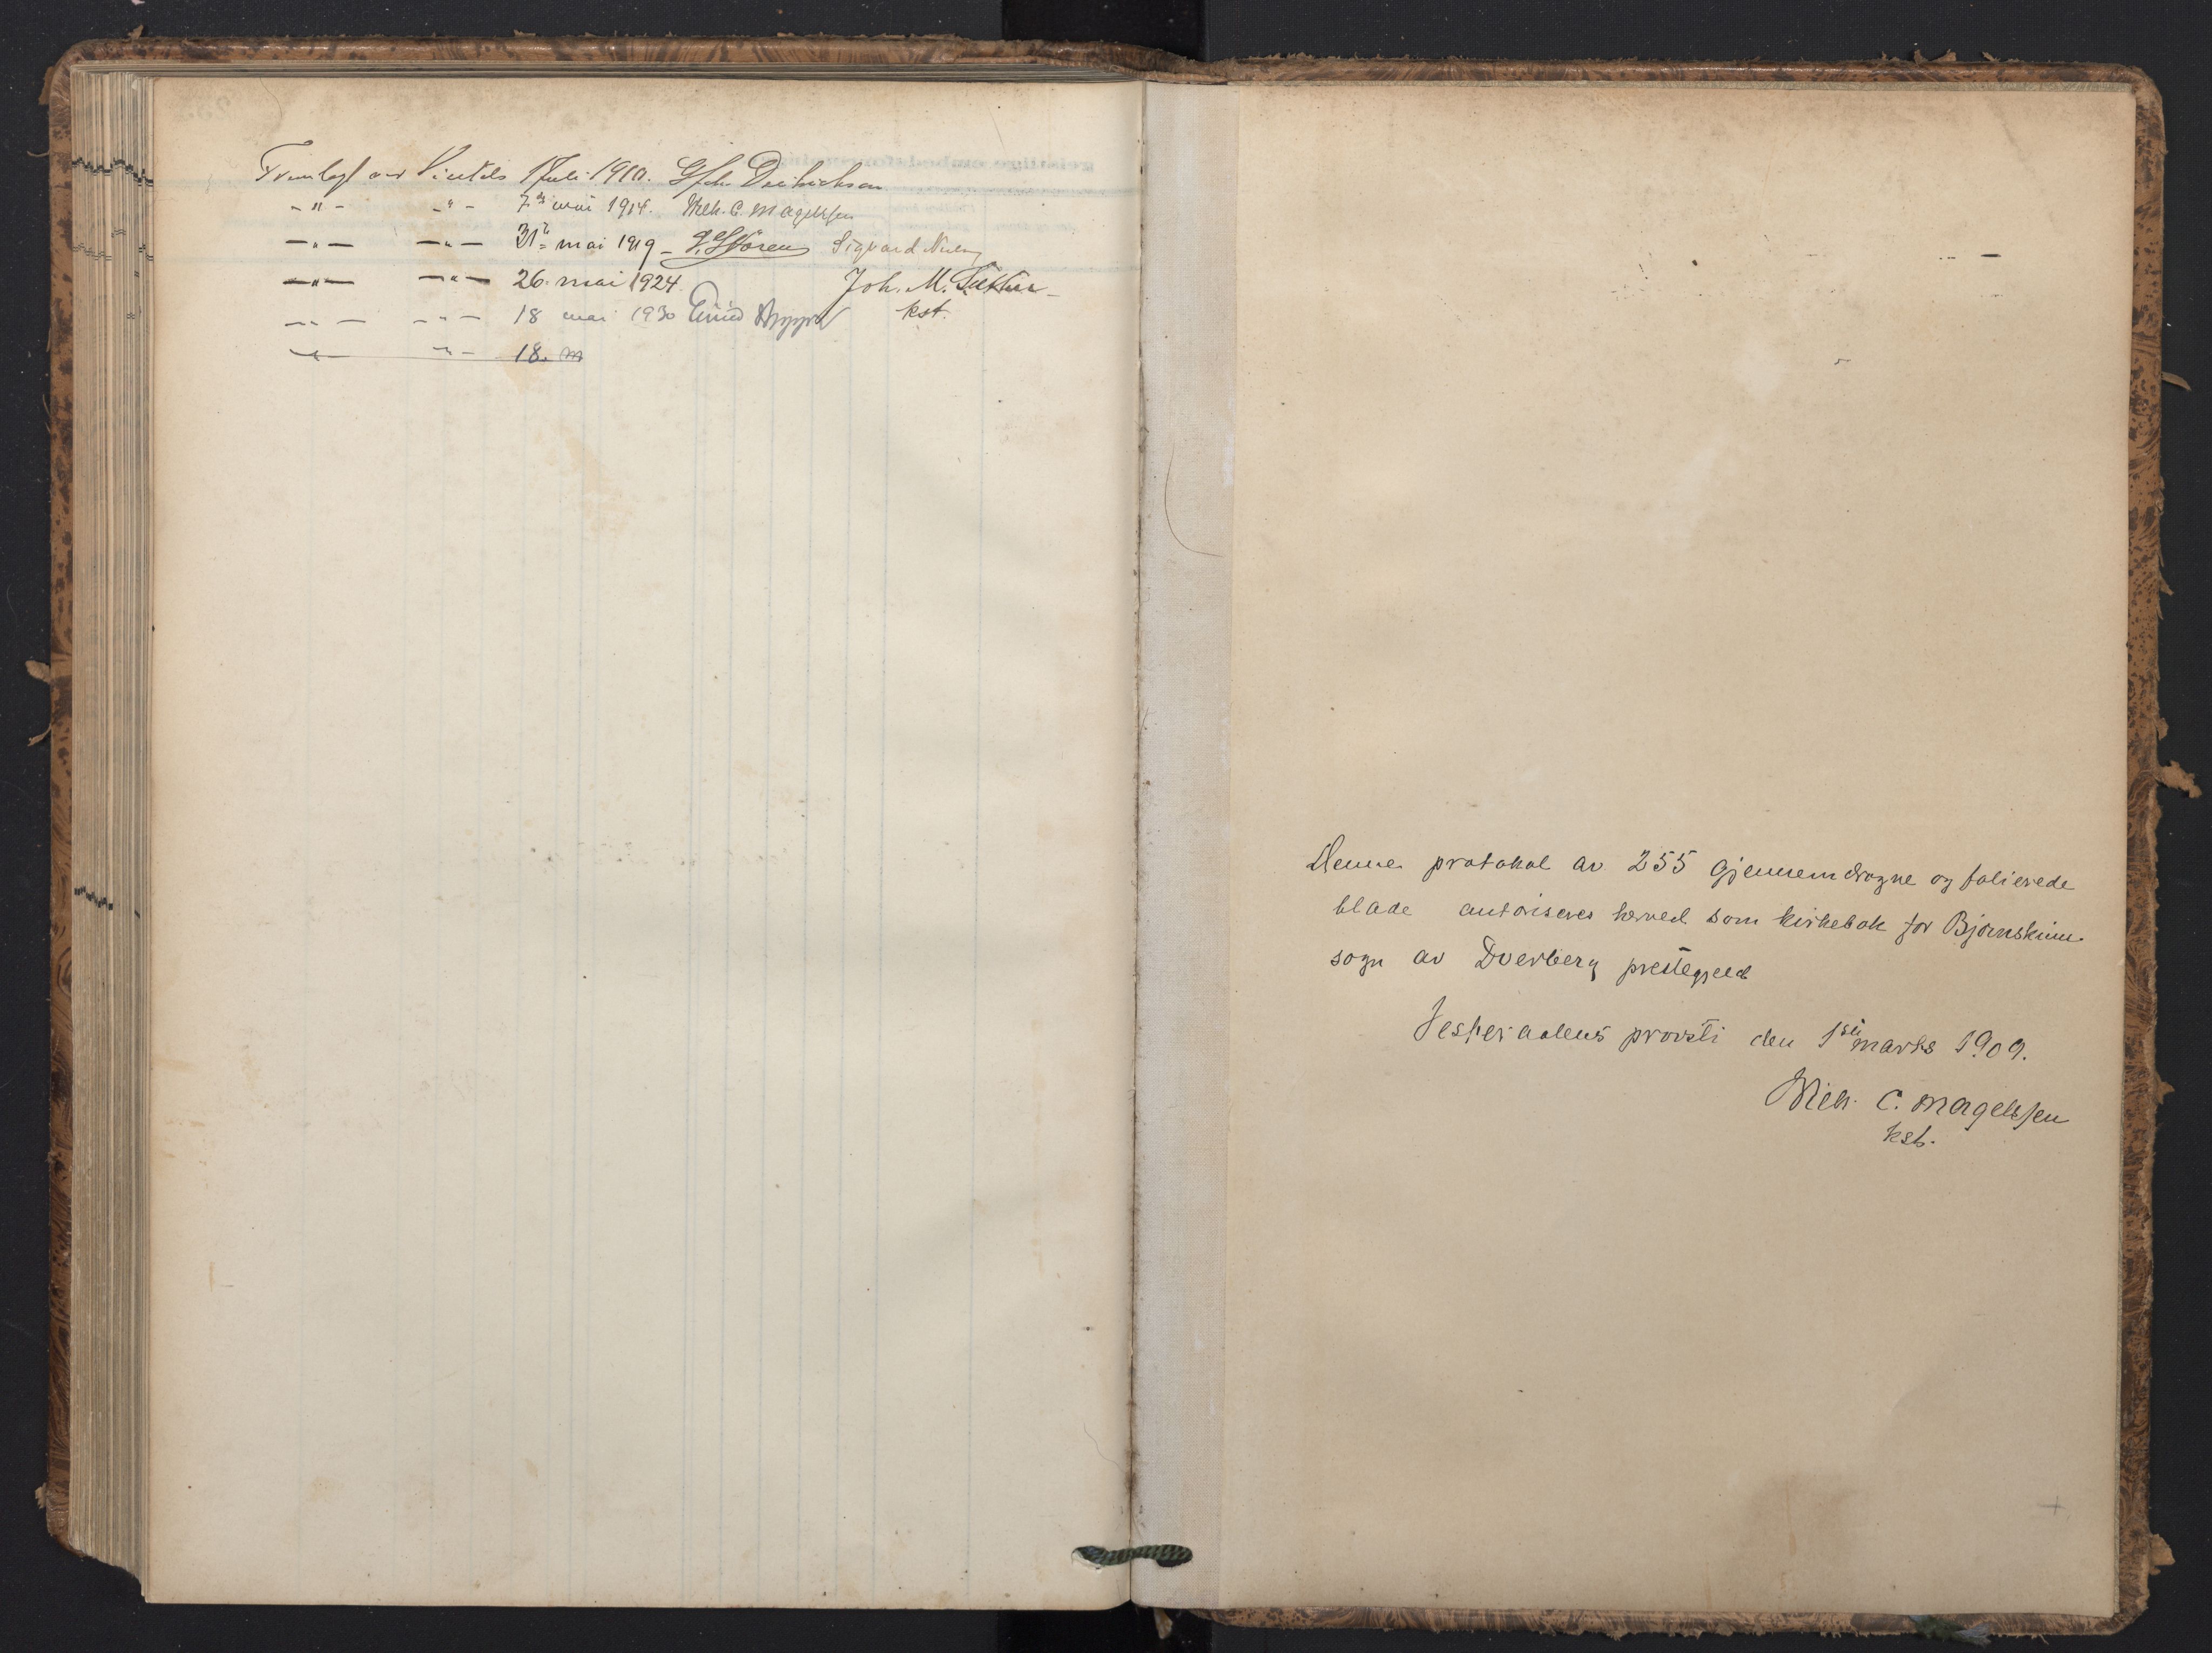 Fremlagt av Visitats 1 Juli 1910. Joh. Diedrichsen
-"- -"- 7de mai 1914. Wilh. C. Magelssen
-"- -"- 31te mai 1919 - Sigvard
-"- -"- 26. mai 1924. Joh. M.
-"- -"- 18 mai 1930 Eivind kst.
-"- -"- 18. m
Denne protokol av 255 gjennemdragne og folierede
blade autoriseres herved som kirkebok for Bjørnskinn
sogn av Dverberg prestegjeld
Vesteraalens provsti den 1ste marts 1909.
Wilh. C. Magelssen
kst.